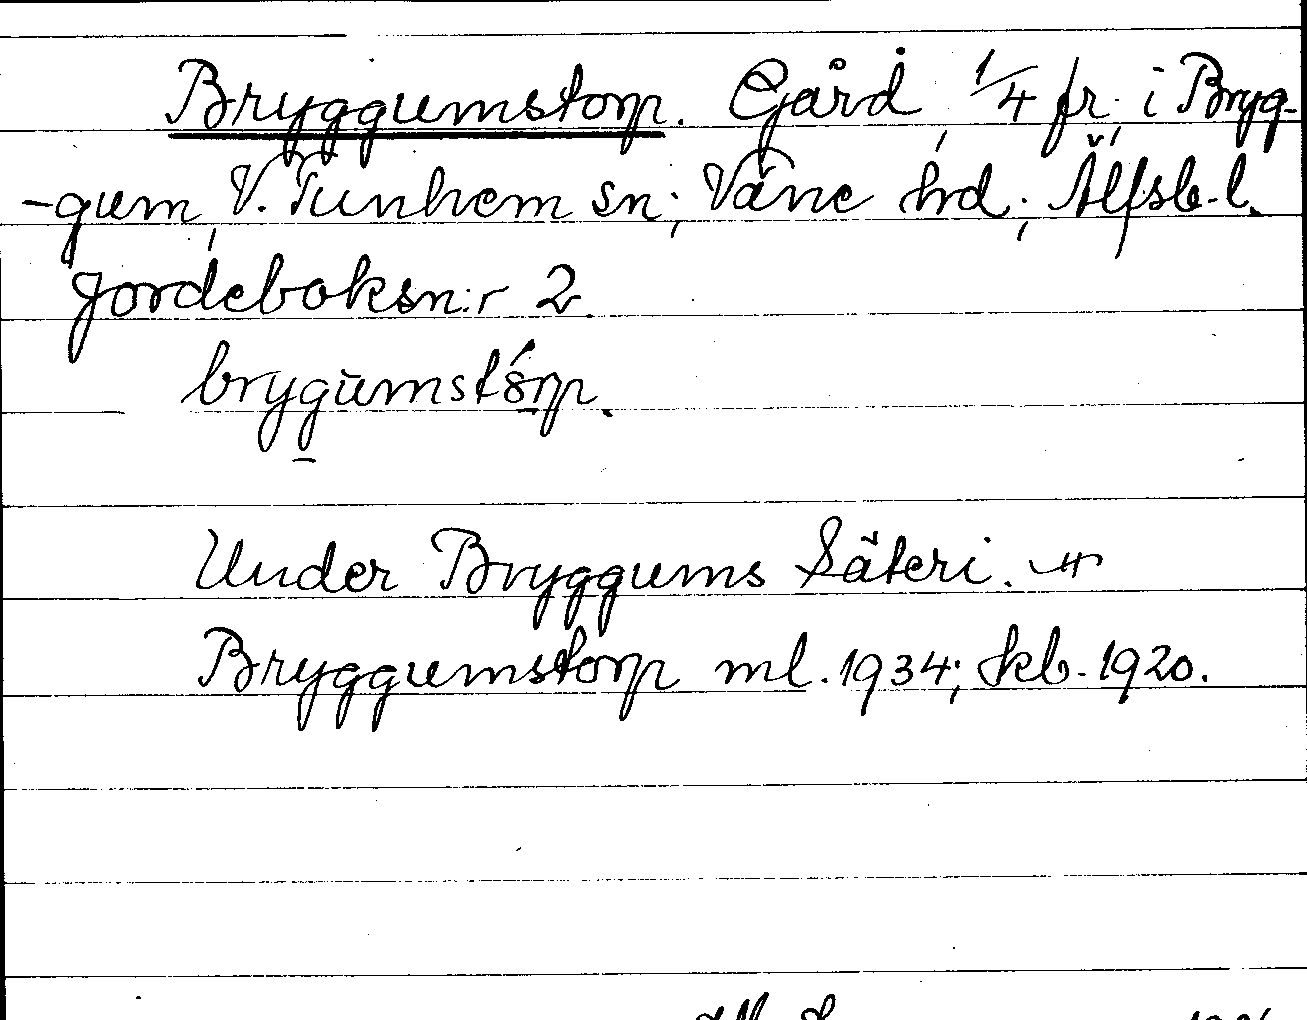 Bryggumstorp. Gård, 1/4 fr, i Bryg-
-gum, V. Tunhem sn; Väne hd; Älfsb. l.
Jordeboksn:r 2.
brygumstorp.
Under Bryggums Säteri.
Bryggumstorp ml. 1934; skb. 1920.